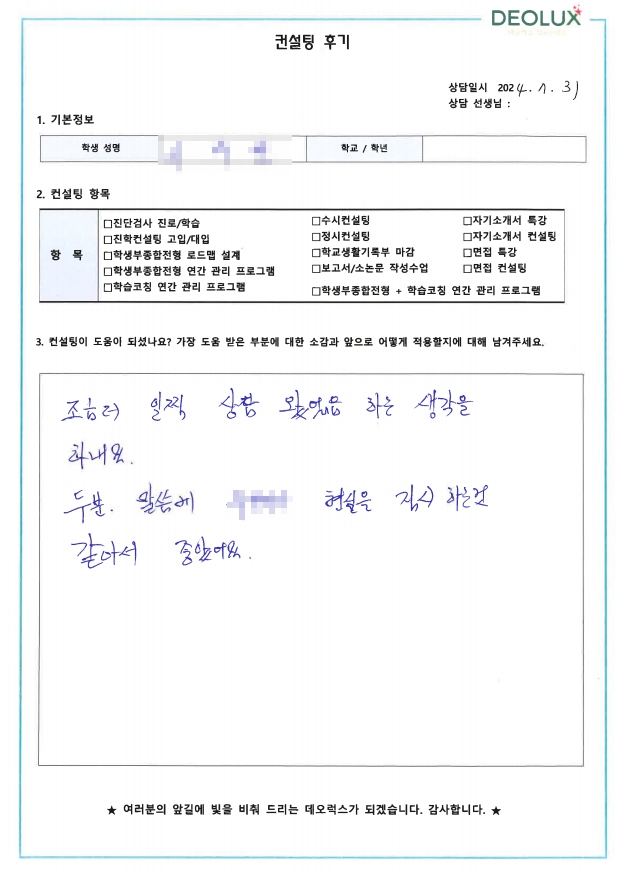 DEOLUX
컨설팅 후기
상담일시 2024. 7. 31
상담 선생님 :
1. 기본정보
학생 성명
학교 / 학년
2. 컨설팅 항목
항 목
□진단검사 진로/학습 □수시컨설팅 □자기소개서 특강
□진학컨설팅 고입/대입 □정시컨설팅 □자기소개서 컨설팅
□학생부종합전형 로드맵 설계 □학교생활기록부 마감 □면접 특강
□학생부종합전형 연간 관리 프로그램 □보고서/소논문 작성수업 □면접 컨설팅
□학습코칭 연간 관리 프로그램 □학생부종합전형 + 학습코칭 연간 관리 프로그램
3. 컨설팅이 도움이 되셨나요? 가장 도움 받은 부분에 대한 소감과 앞으로 어떻게 적용할지에 대해 남겨주세요.
조금더 일찍 상담 왔었음 하는 생각을
하내요.
두분. 말씀에 현실을 직시 하는것
같아서 좋았어요.
★ 여러분의 앞길에 빛을 비춰 드리는 데오럭스가 되겠습니다. 감사합니다. ★